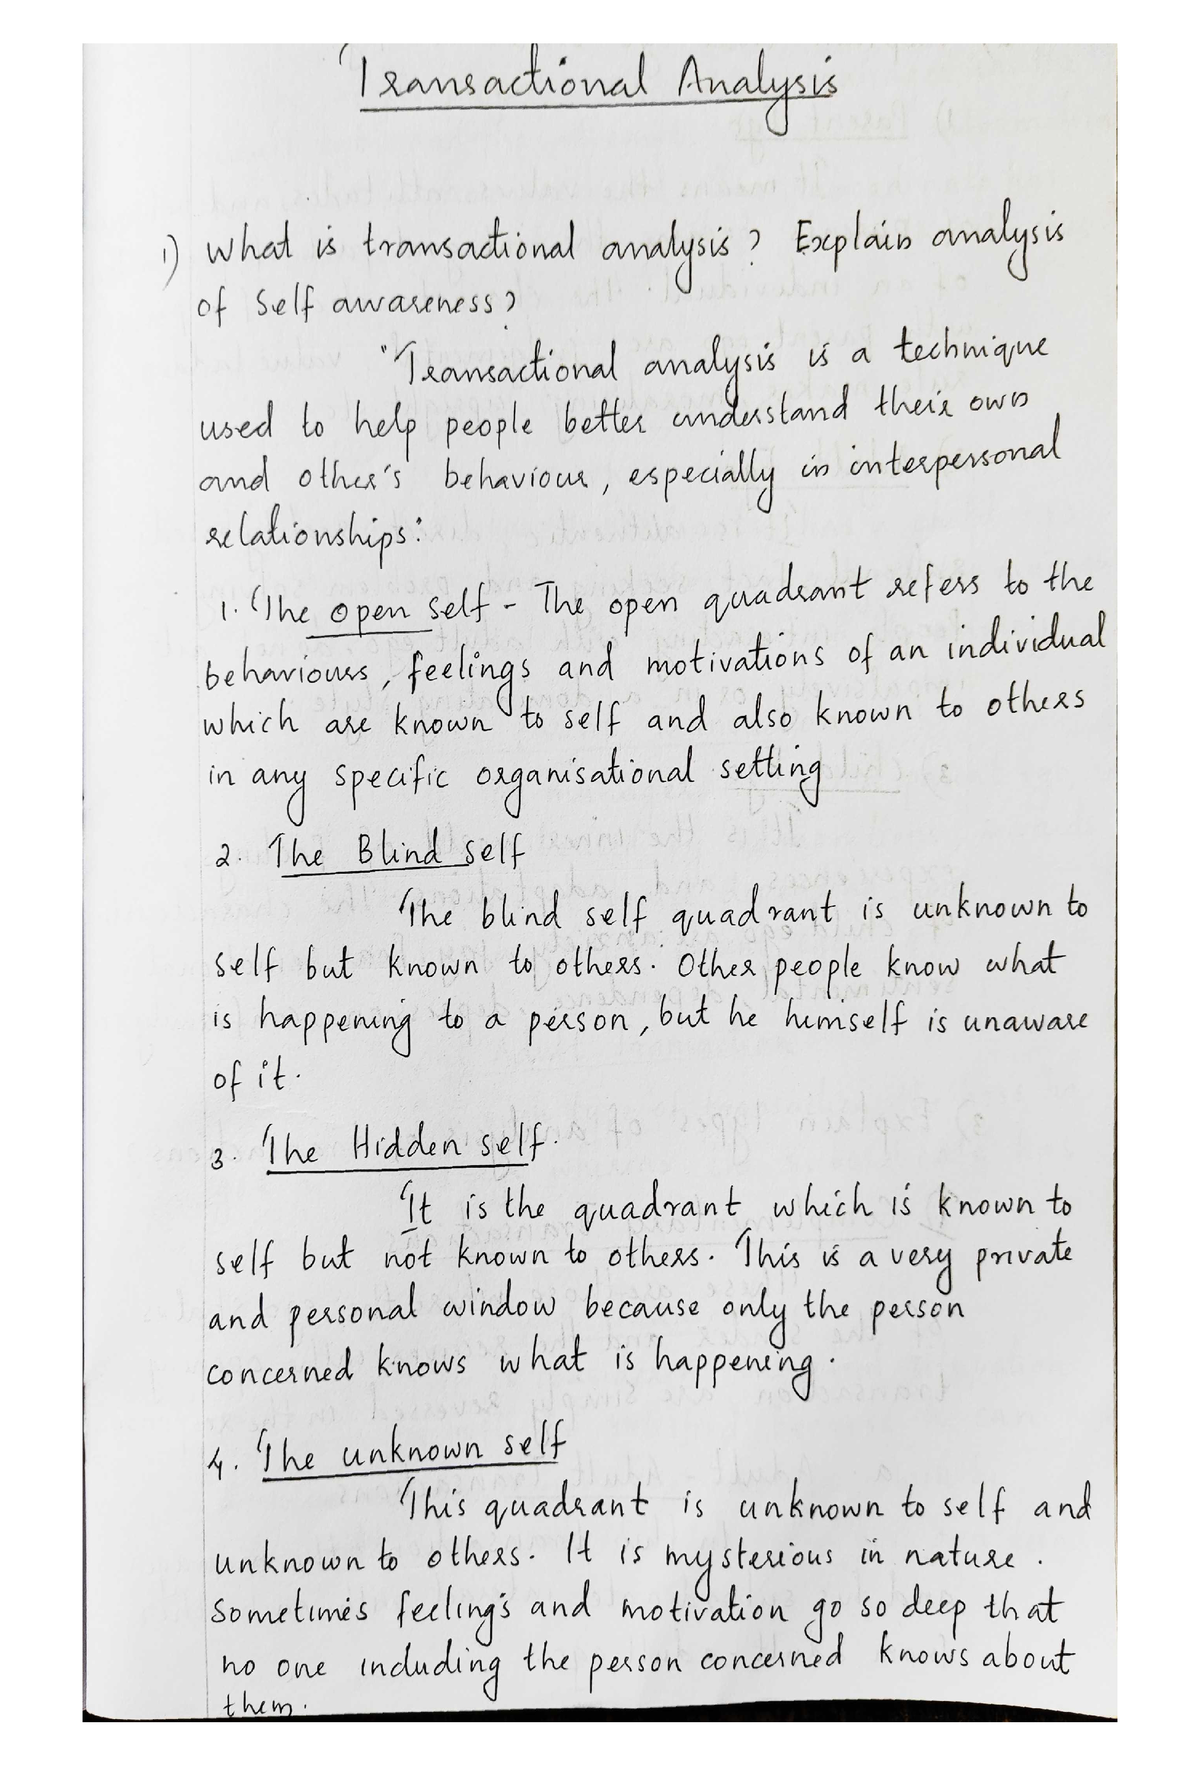 Transactional Analysis
1) What is transactional analysis? Explain analysis
of Self awareness?
"Transactional analysis is a technique
used to help people better understand their own
and other's behaviour, especially in interpersonal
relationships."
1. The open self - The open quadrant refers to the
behaviours, feelings and motivations of an individual
which are known to self and also known to others
in any specific organisational setting
2. The Blind self
The blind self quadrant is unknown to
self but known to others. Other people know what
is happening to a person, but he himself is unaware
of it.
3. The Hidden self.
It is the quadrant which is known to
self but not known to others. This is a very private
and personal window because only the person
concerned knows what is happening.
4. The unknown self
This quadrant is unknown to self and
unknown to others. It is mysterious in nature.
Sometimes feelings and motivation go so deep that
no one including the person concerned knows about
them.